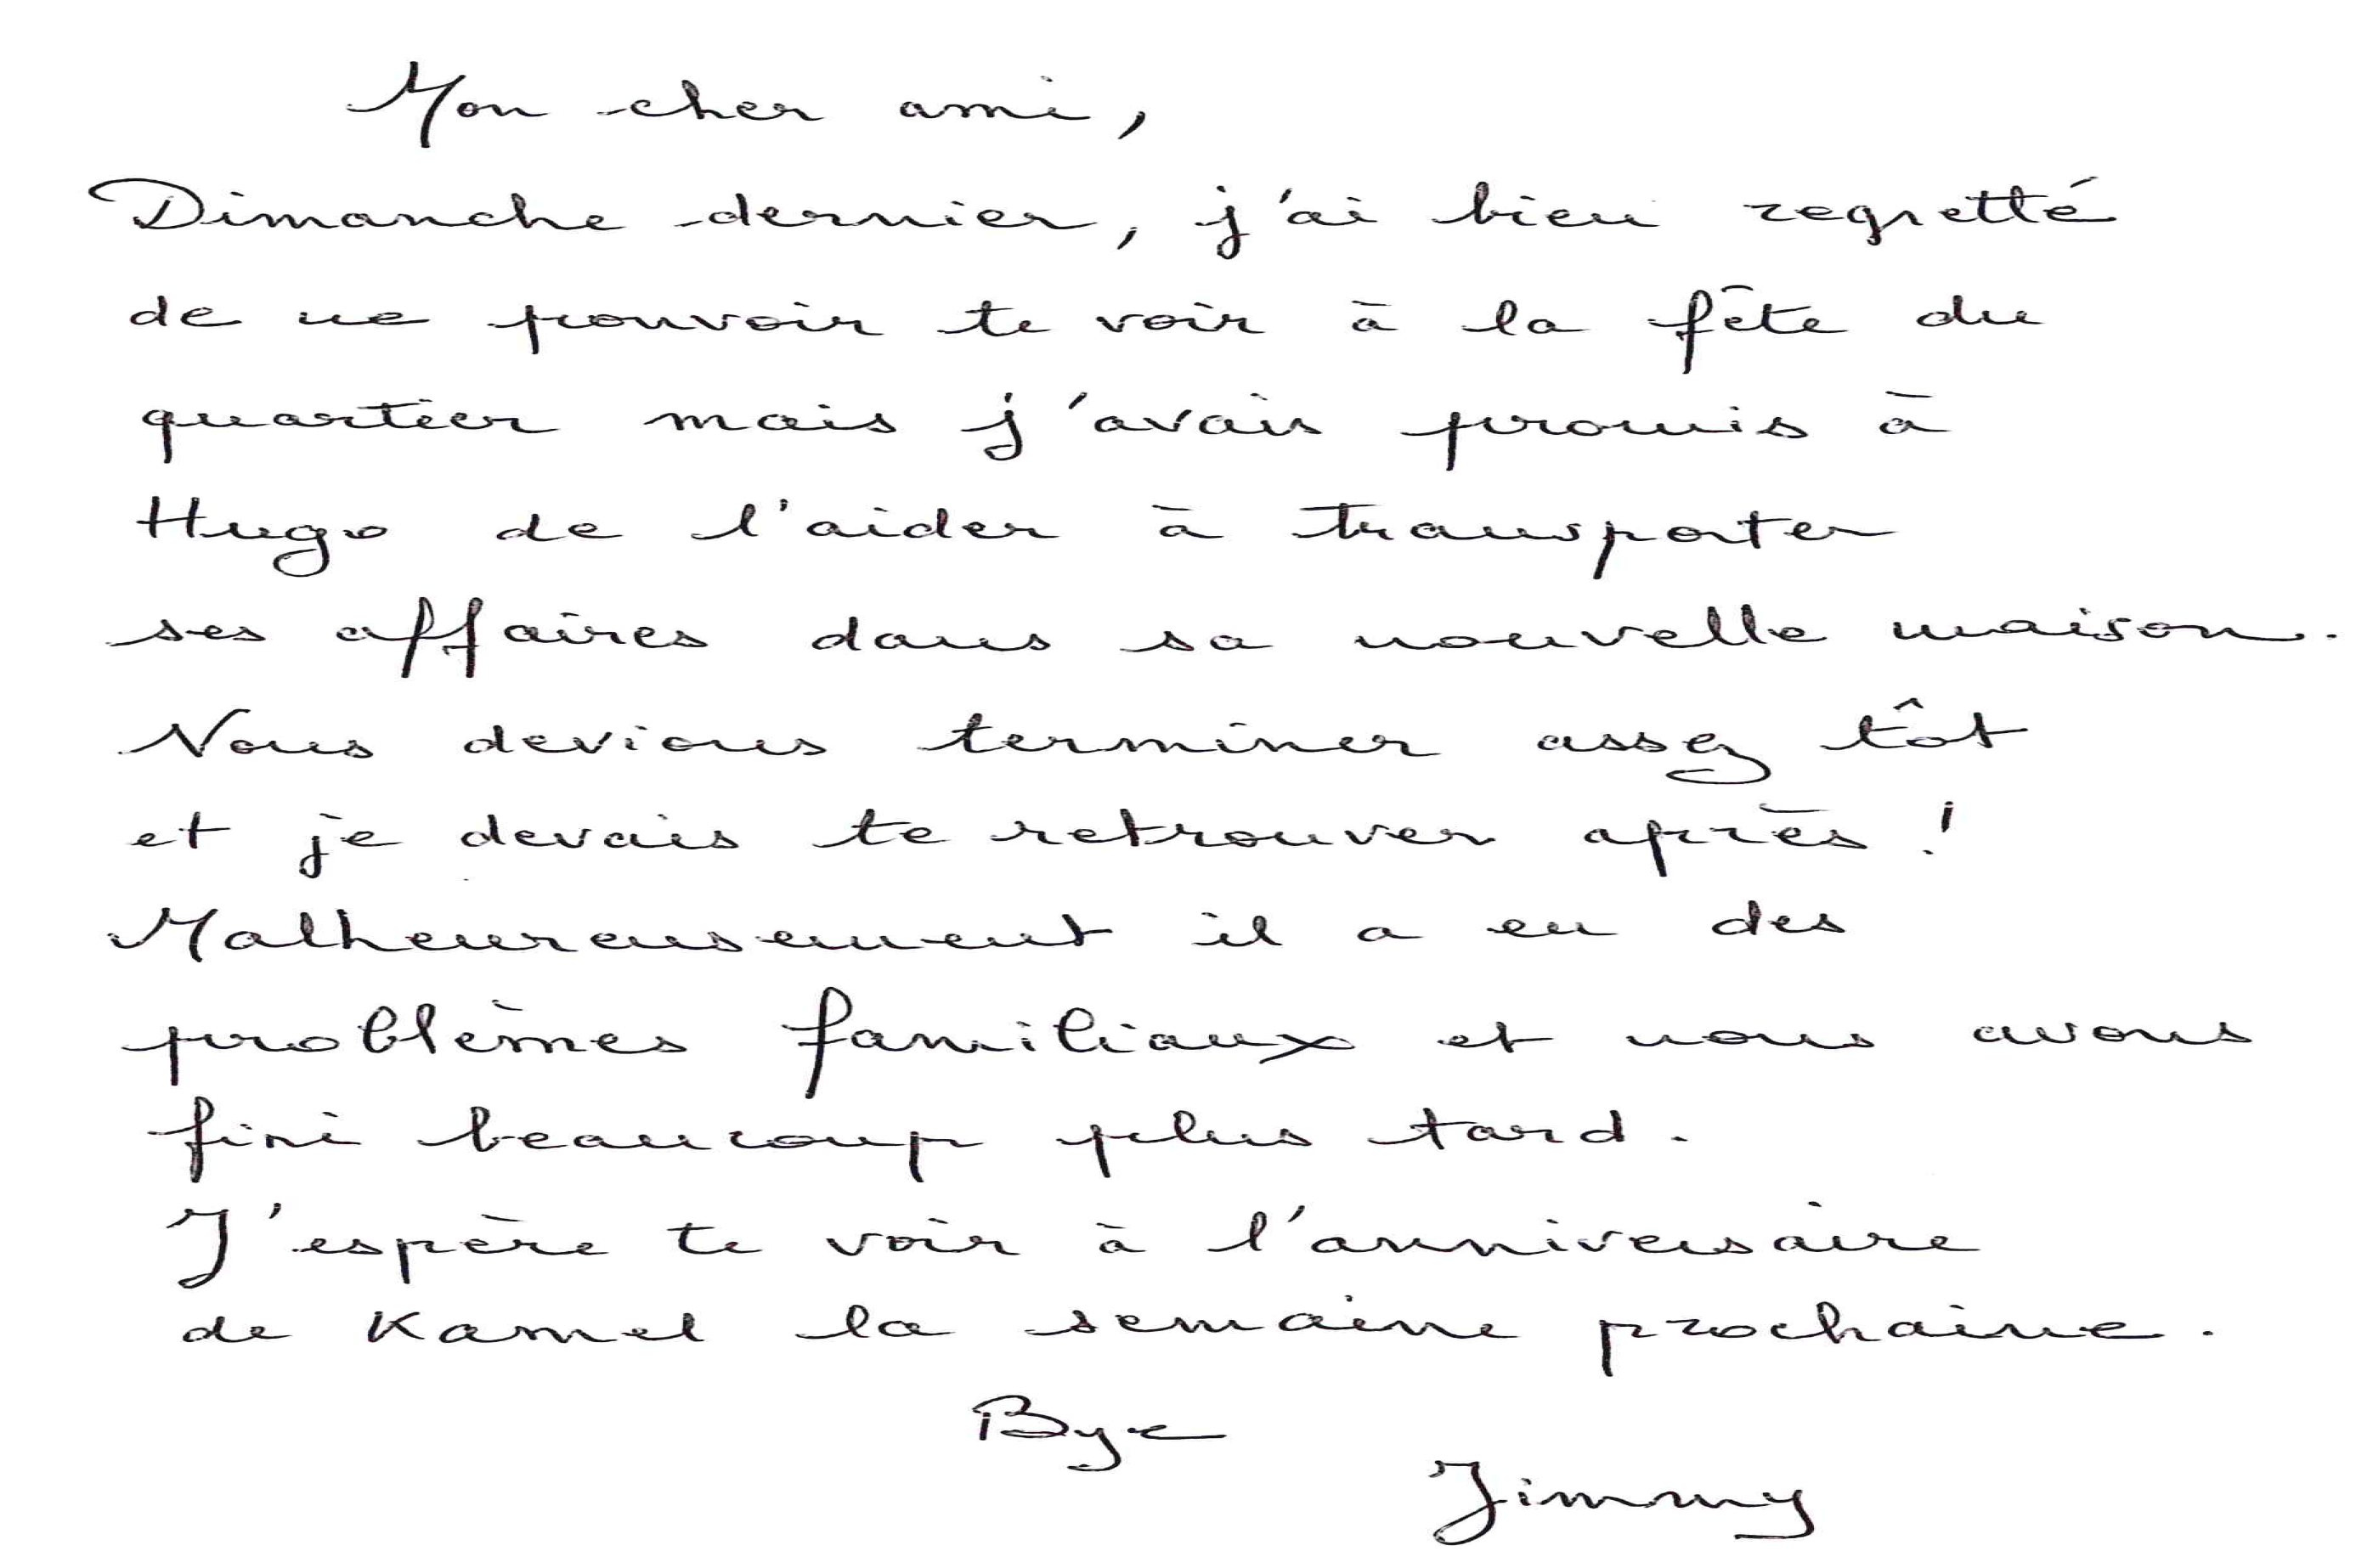 Mon cher ami,
Dimanche dernier, j'ai bien regretté
de ne pouvoir te voir à la fête du
quartier mais j'avais promis à
Hugo de l'aider à transporter
ses affaires dans sa nouvelle maison.
Nous devions terminer assez tôt
et je devais te retrouver après !
Malheureusement il a eu des
problèmes familiaux et nous avons
fini beaucoup plus tard.
J'espère te voir à l'anniversaire
de Kamel la semaine prochaine.
Bye
Jimmy